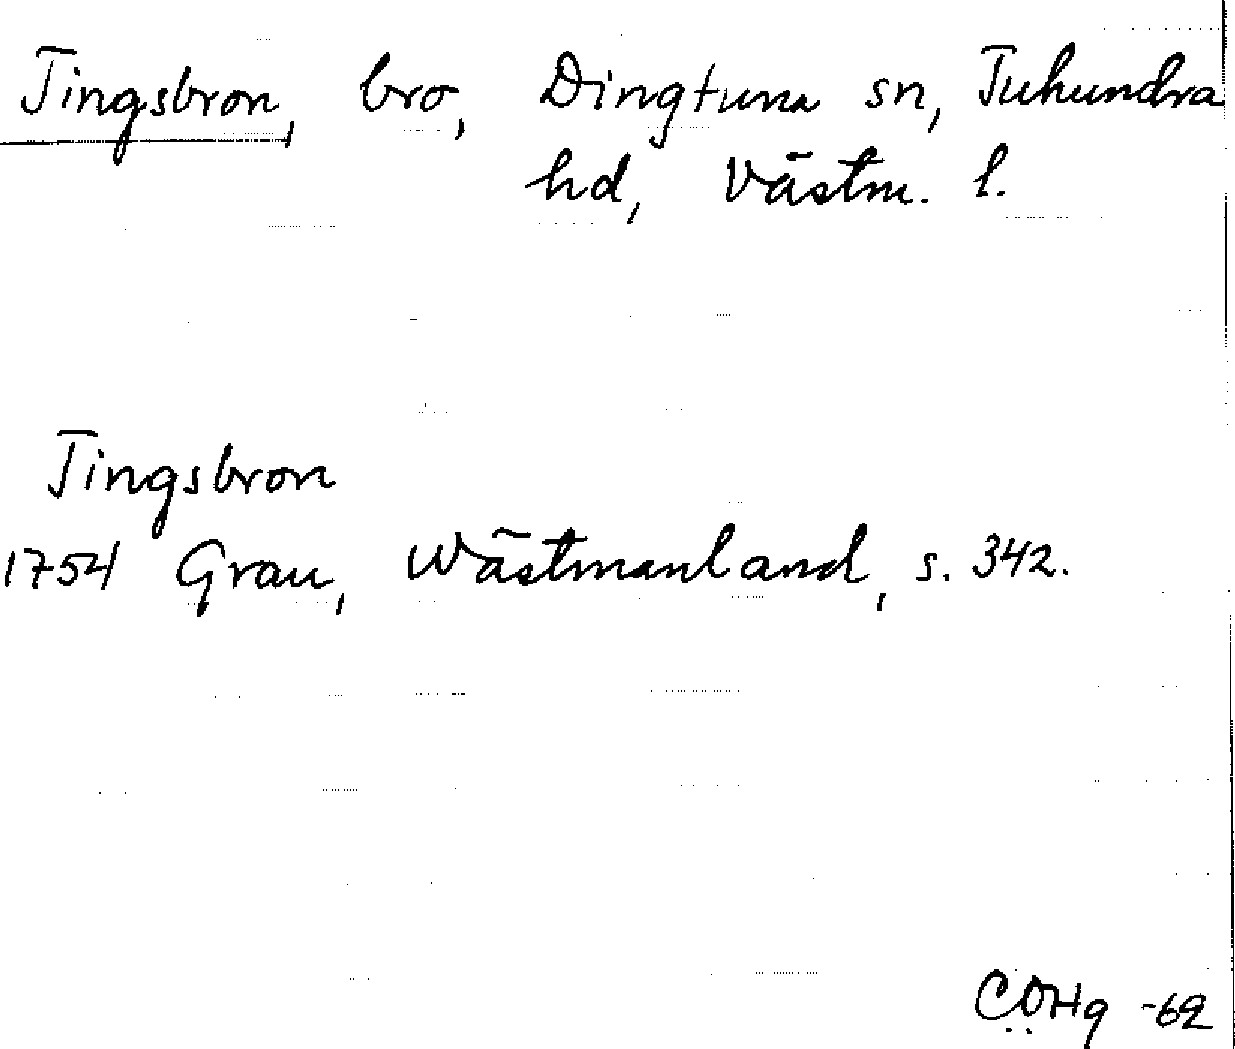 Tingsbron, bro, Dingtuna sn, Tuhundra
hd, Västm. l.
Tingsbron
1754 Grau, Wästmanland, s. 342.
COHg -62